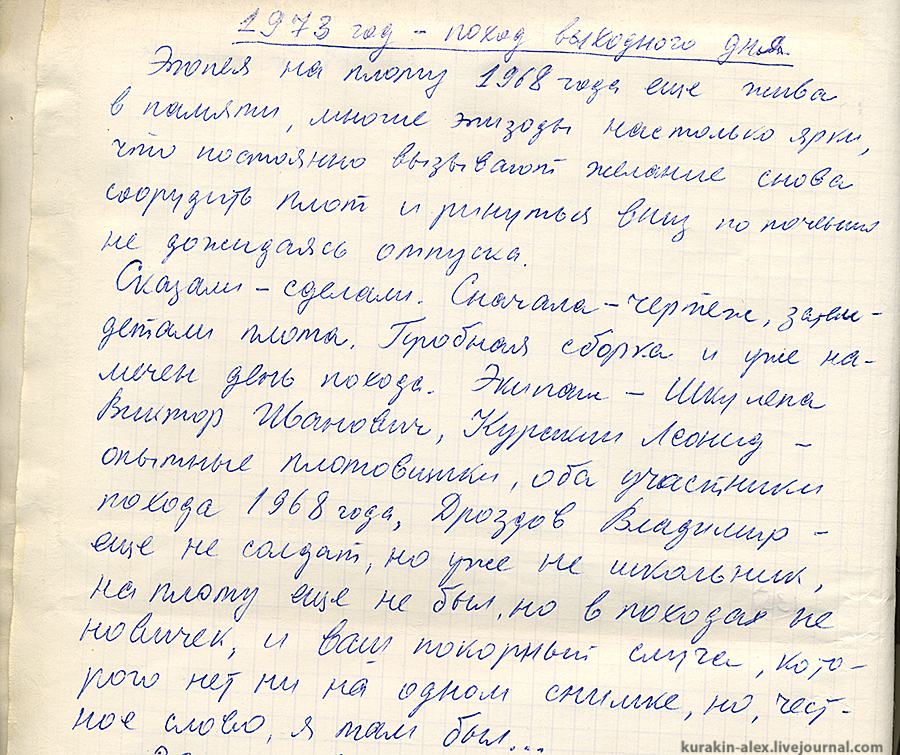 1973 год - поход выходного дня
Эпопея на плоту 1968 года еще жива
в памяти, многие эпизоды настолько ярки,
что постоянно вызывают желание снова
соорудить плот и ринуться вниз по течению
не дожидаясь отпуска.
Сказали - сделали. Сначала - чертеж, затем -
детали плота. Пробная сборка и уже на-
мечен день похода. Экипаж - Шкулепа
Виктор Иванович, Курский Леонид -
опытные плотовщики, оба участники
похода 1968 года, Дроздов Владимир -
еще не солдат, но уже не школьник,
на плоту еще не был, но в походах не
новичек, и ваш покорный слуга, кото-
рого нет ни на одном снимке, но, чест-
ное слово, я там был...
kurakin-alex.livejournal.com